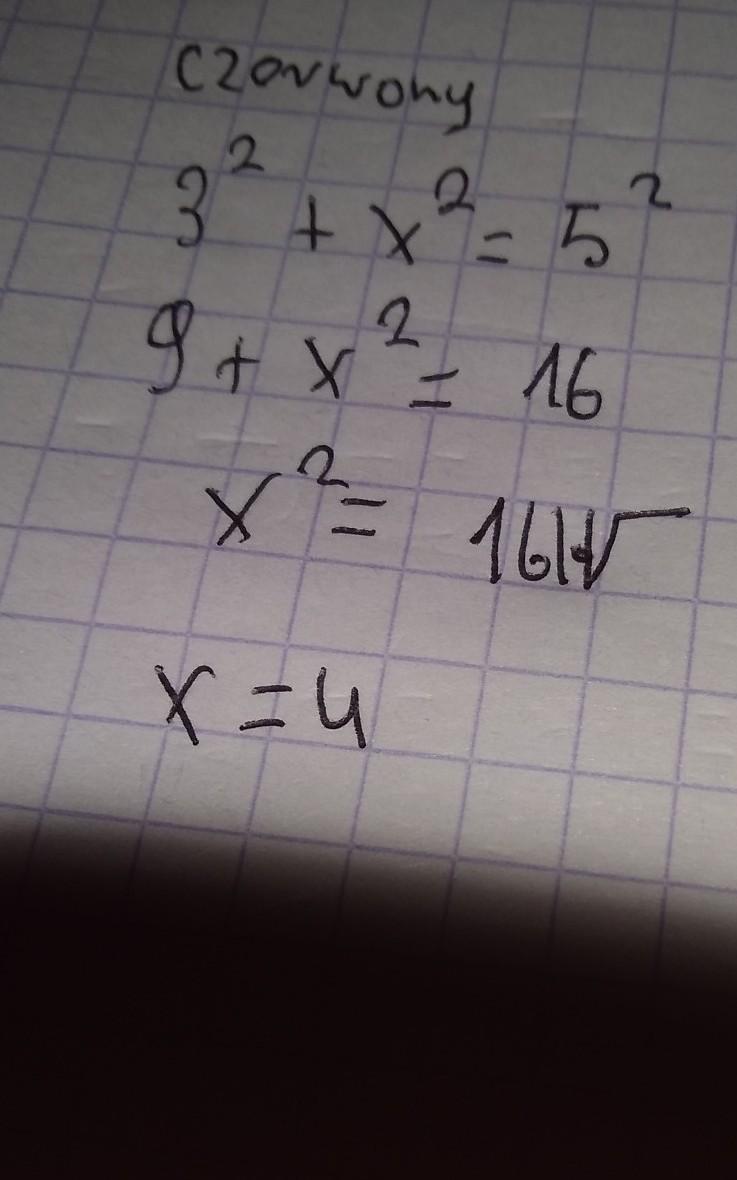 czerwony
3² + x² = 5²
9 + x² = 16
x² = 16|√
x = 4